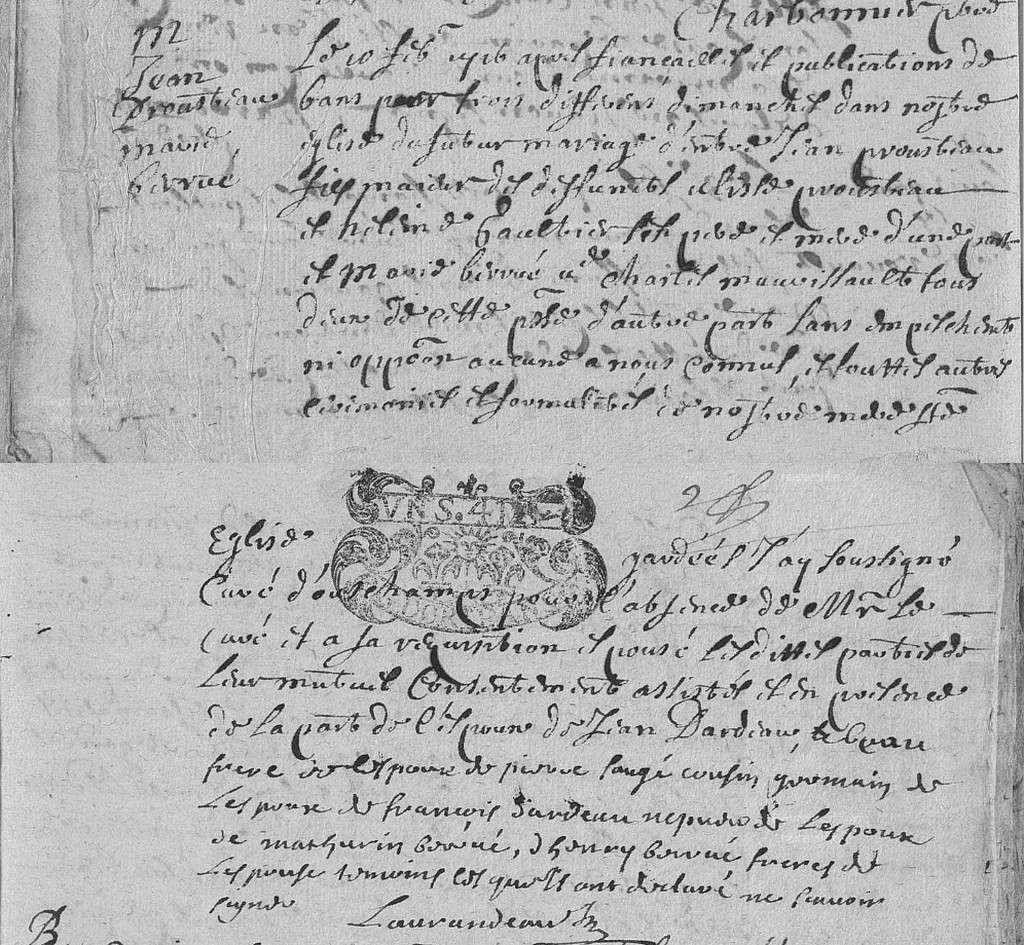 Charbonnier pbre
M
Jean
Prousteau
marie
berrué
Le 10 feb 1716 apres fiancailles et publications de
bans pour trois differens dimanches dans nostre
eglise du futur mariage d'entre Jean prousteau
fils majeur des deffuncts prousteau
et heleine Gaultier ses pere et mere d'une part
et Marie berrué vde Charles mauvissault tous
deux de cette psse d'autre part sans empeschemt
ni opposon aucune a nous connus, et touttes autres
ceremonies et formalités de nostre mere ste
VN S. 4 D
Eglise gardées J'ay soussigné
Curé d'ouschamps pour l'absence de Mr le
curé et a sa requisition espousé lesdittes parties de
leur mutuel Consentement assistés et en presence
de la part de l'espoux de Jean Dardeau, beau
frere de lespoux de pierre saugé cousin germain de
Lespoux de francois dardeau nepveu de Lespoux
de mathurin berrué, d henry berrué freres de
Lespouse temoins lesquels ont declaré ne scavoir
signer
Laurandeau
B